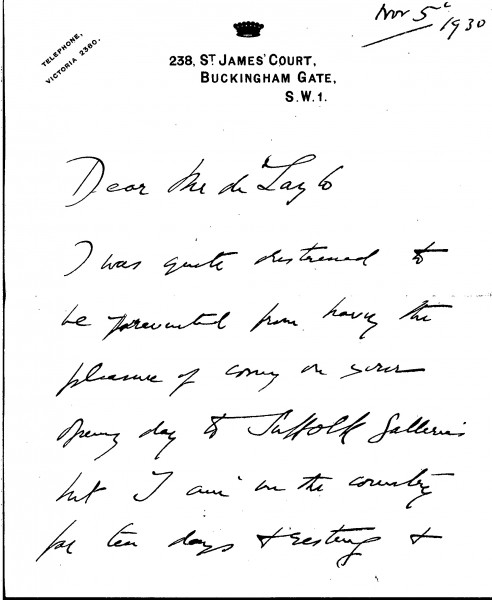 Nov 5th 1930
TELEPHONE,
VICTORIA 2360.
238, ST JAMES' COURT,
BUCKINGHAM GATE,
S.W.1.
Dear Mr de
I was quite distressed to
be prevented from having the
pleasure of coming on your
opening day to Suffolk Galleries
but I am in the country
for ten days & resting &